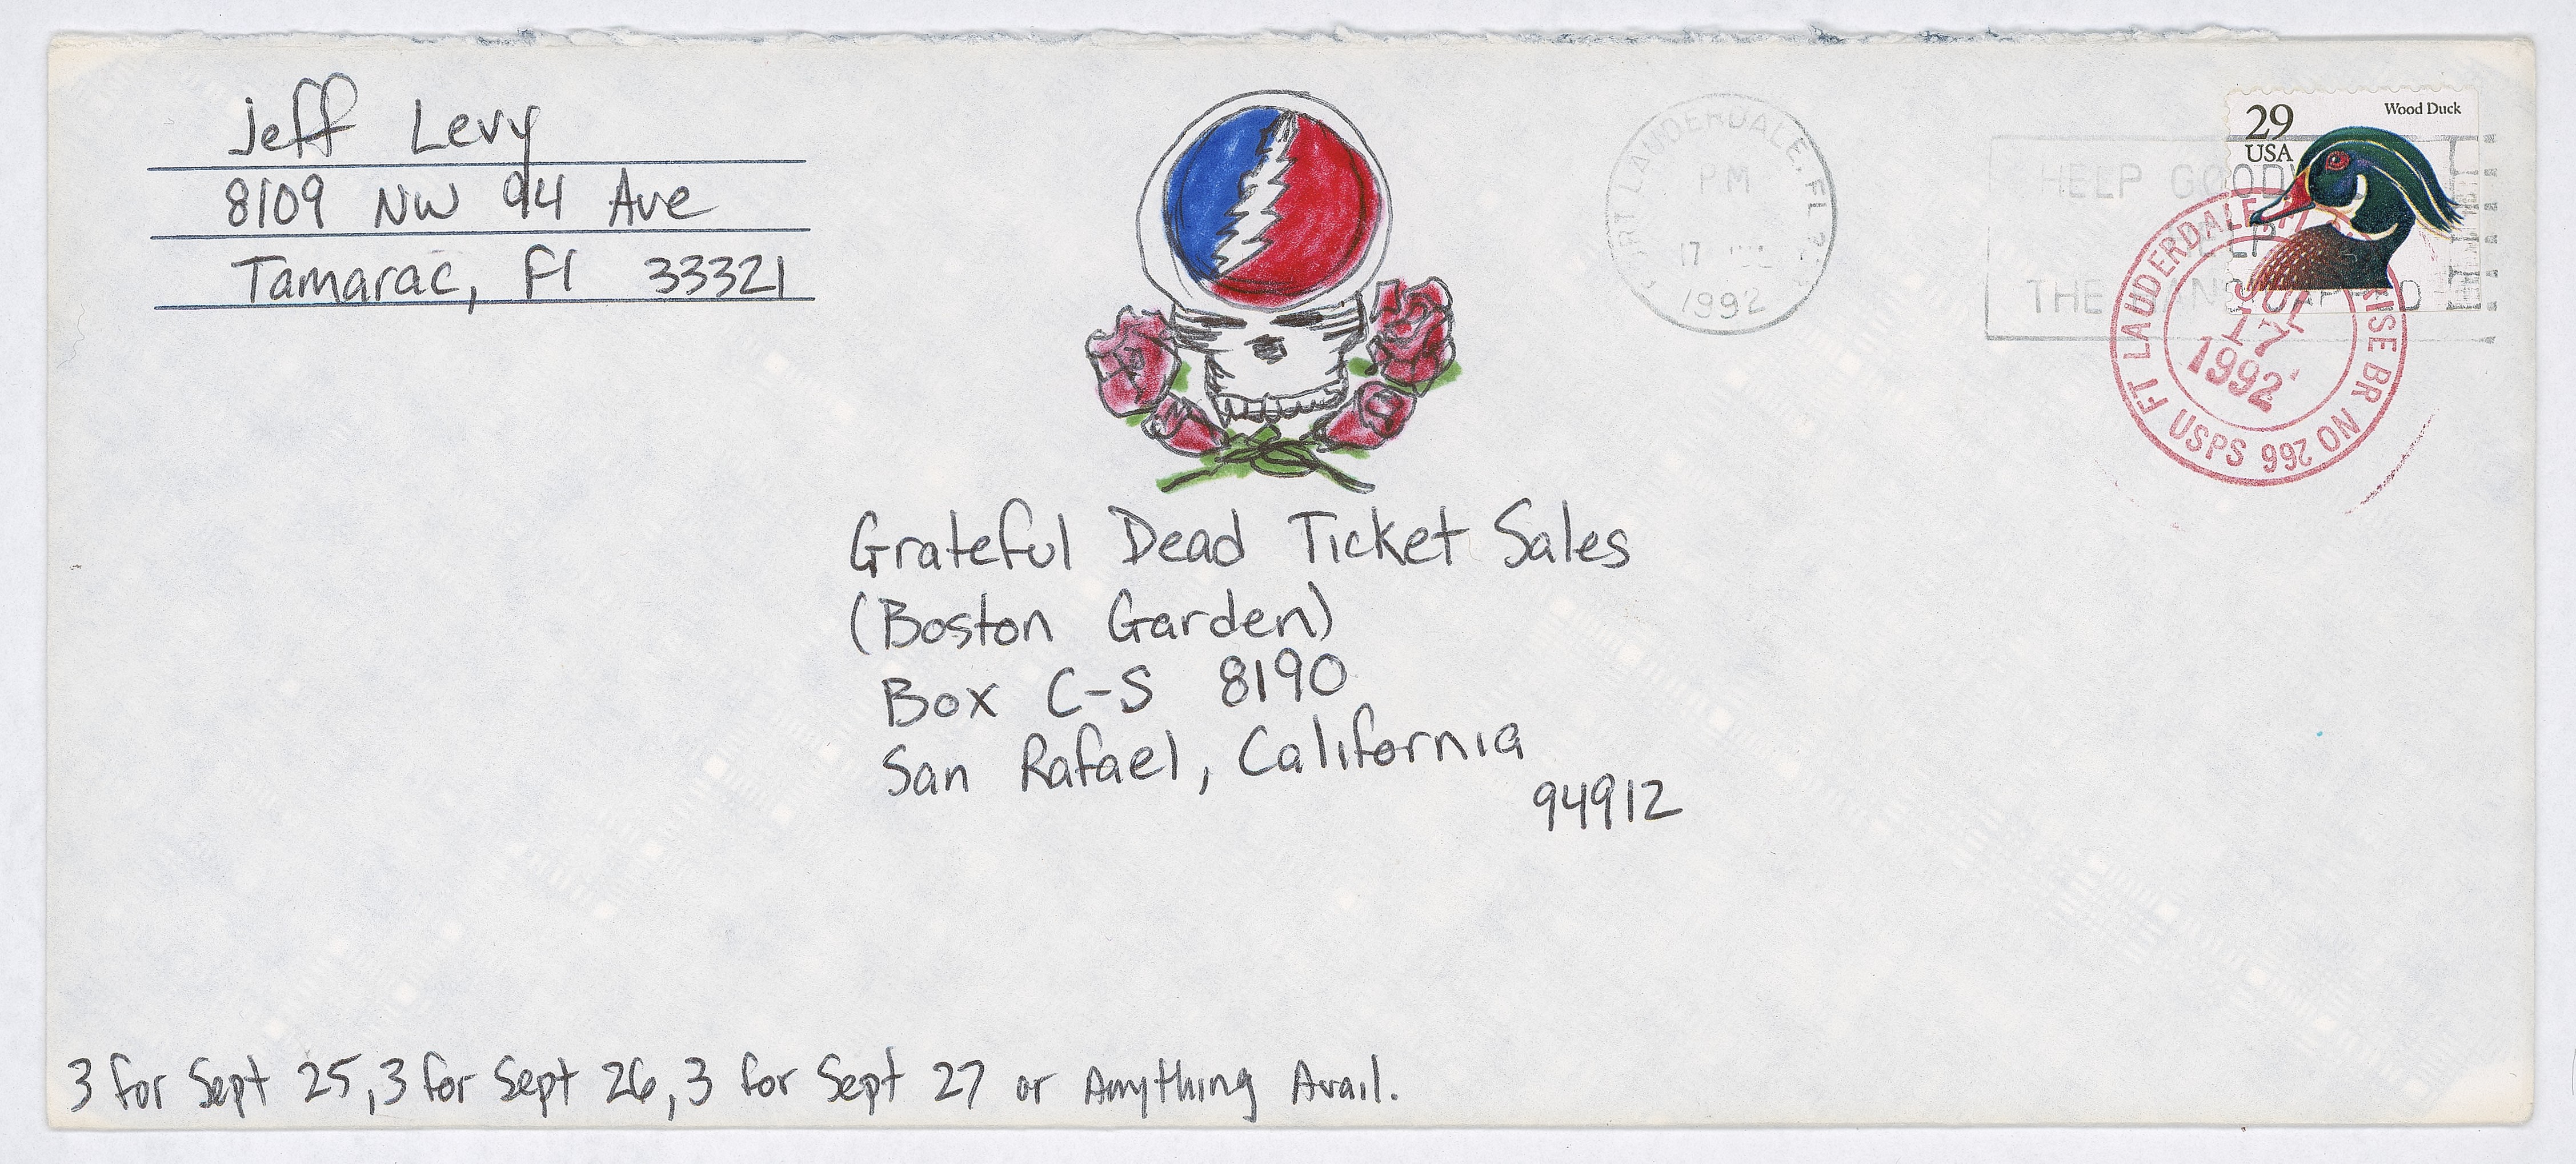 Jeff Levy
8109 NW 94 Ave
Tamarac, Fl 33321
FORT LAUDERDALE, FL
PM
17
1992
29
USA
Wood Duck
HELP
THE
FT LAUDERDALE
BR NO 266 USPS
JUL
17
1992
Grateful Dead Ticket Sales
(Boston Garden)
Box C-S 8190
San Rafael, California
94912
3 for Sept 25, 3 for Sept 26, 3 for Sept 27 or Anything Avail.